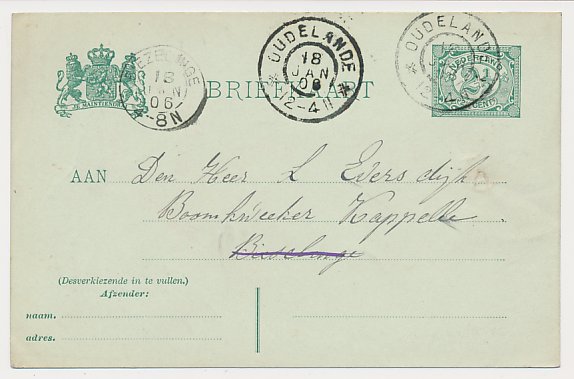 BIEZELINGE
18
JAN
06
4-8N
OUDELANDE
18
JAN
06
12-4N
OUDELANDE
NEDERLAND
2½
CENT
JE MAINTIENDRAI
BRIEFKAART
AAN Den Heer L Eversdijk
Boomkweeker Kapelle
Biezelinge
(Desverkiezende in te vullen.)
Afzender:
naam.
adres.